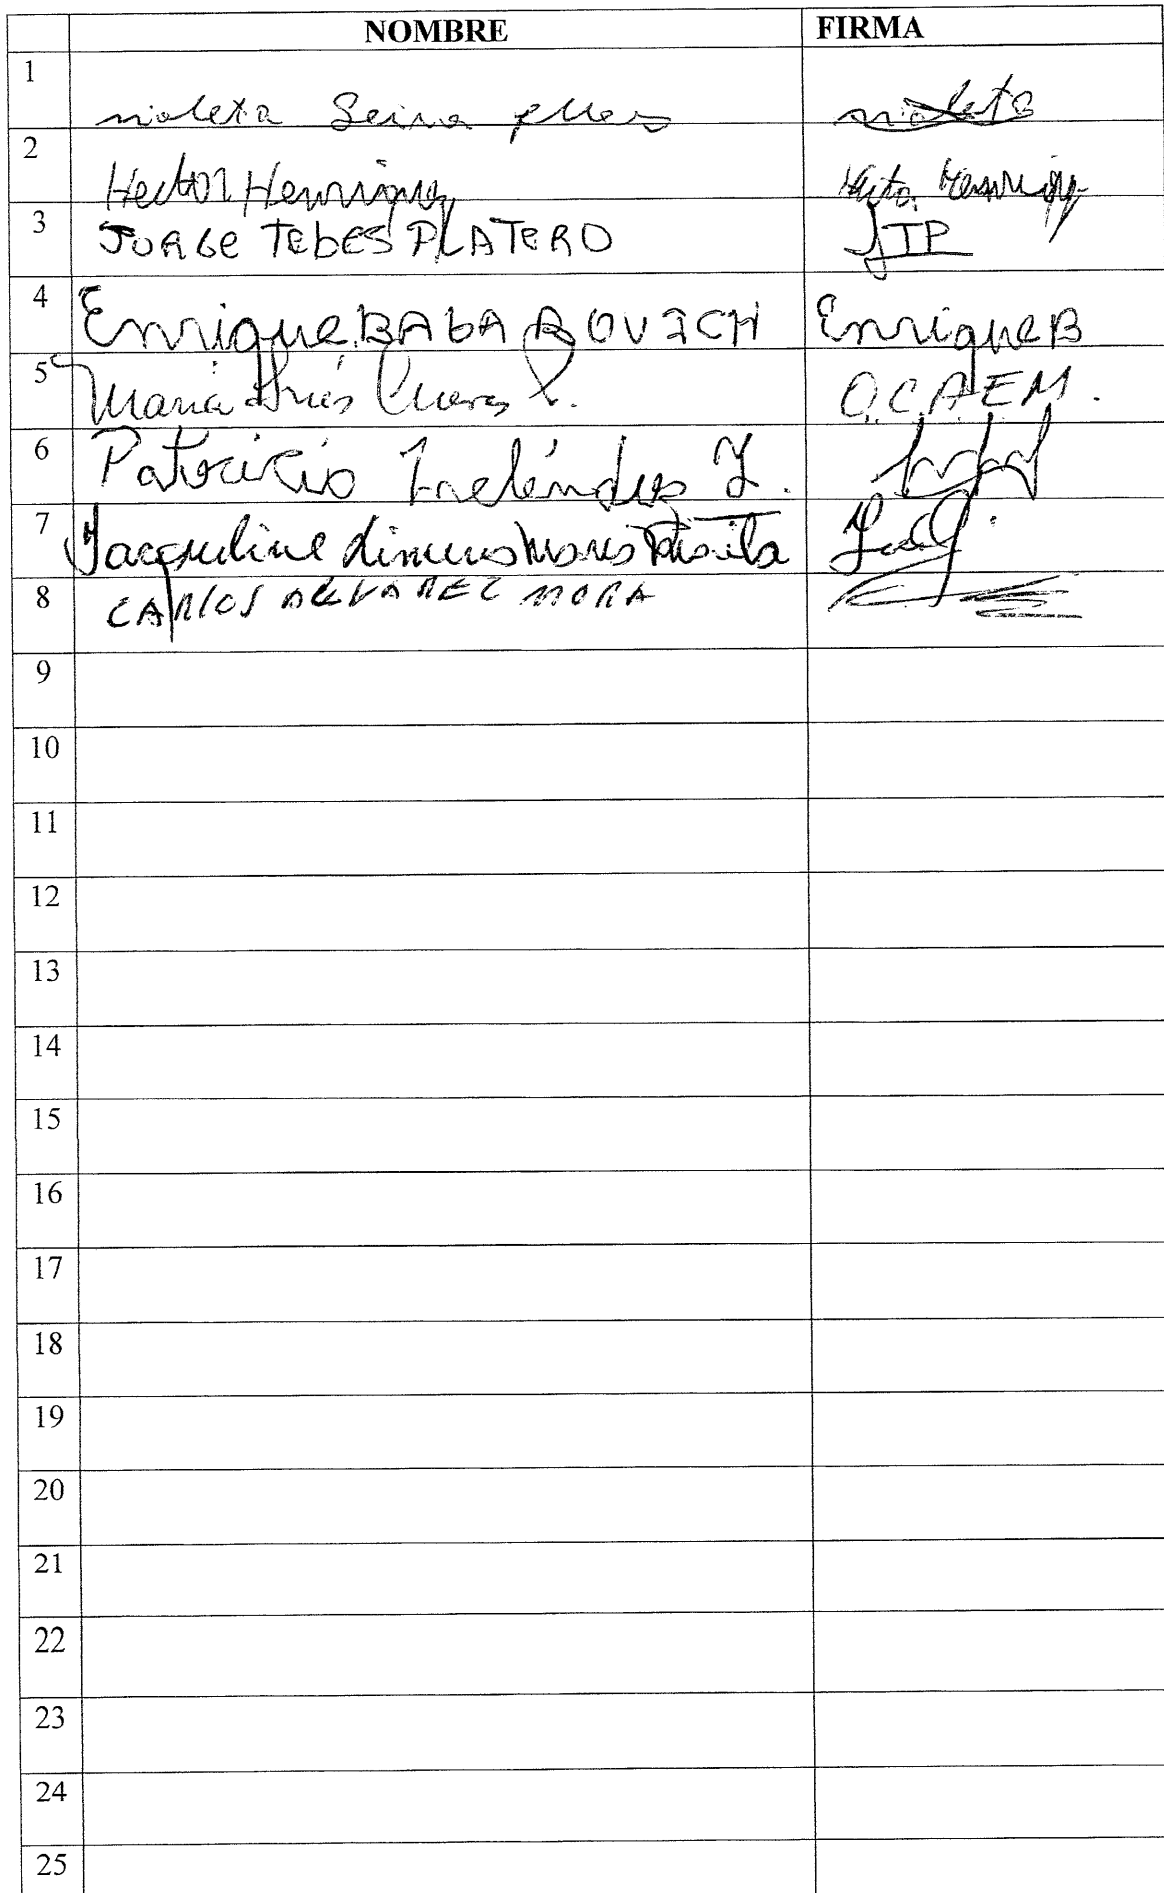 NOMBRE FIRMA
1 violeta violeta
2 Hector Henriquez
3 JORGE TEBES PLATERO JTP
4 Enrique BABAROVICH Enrique B
5 Maria Inés Cuevas O.C.A.E.M.
6 Patricio
7 Jacqueline
8 CARLOS ALVAREZ MORA
9
10
11
12
13
14
15
16
17
18
19
20
21
22
23
24
25